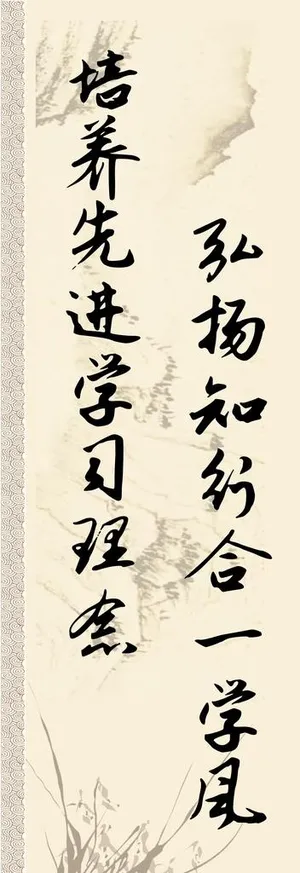 培养先进学习理念
弘扬知行合一学风